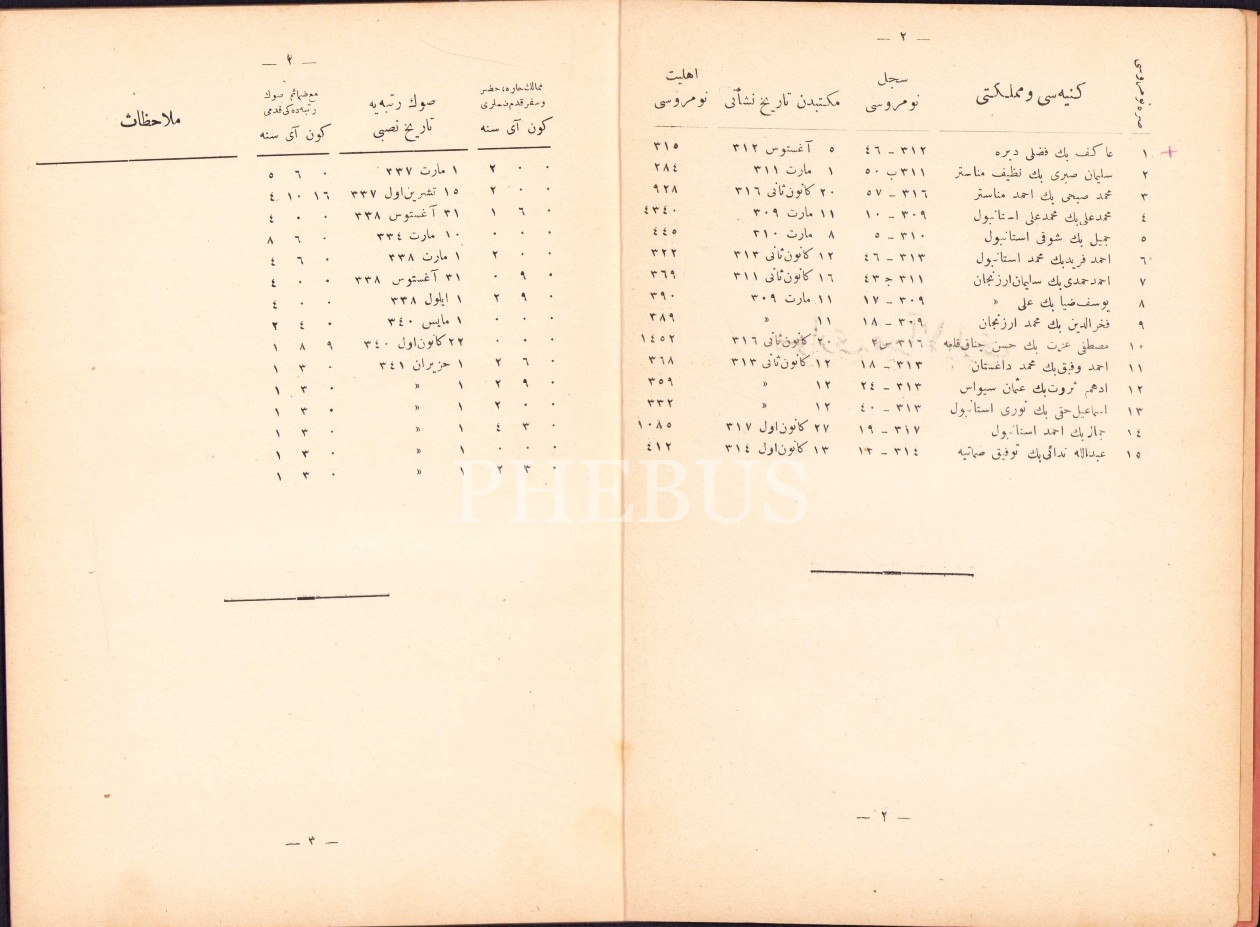 — ٢ —
صره نومروسی
كنيه‌سی و مملكتی
سجل نومروسی
مكتبدن تاريخ نشأتی
اهليت نومروسی
١ عاكف بك فضلی دبره ٣١٢ – ٤٦ ٥ آغستوس ٣١٢ ٣١٥
٢ سليمان صبری بك نظيف مناستر ٣١١ ب ٥٠ ١ مارت ٣١١ ٢٨٤
٣ محمد صبحی بك احمد مناستر ٣١٦ – ٥٧ ٢٠ كانون‌ثانی ٣١٦ ٩٢٨
٤ محمدعلی بك محمدعلی استانبول ٣٠٩ – ١٠ ١١ مارت ٣٠٩ ٤٣٤٠
٥ جميل بك شوقی استانبول ٣١٠ – ٥ ٨ مارت ٣١٠ ٤٤٥
٦ احمد فريدبك محمد استانبول ٣١٣ – ٤٦ ١٢ كانون‌ثانی ٣١٣ ٣٢٢
٧ احمدحمدی بك سليمان ارزنجان ٣١١ ج ٤٣ ١٦ كانون‌ثانی ٣١١ ٣٦٩
٨ يوسف‌ضيا بك علی » ٣٠٩ – ١٧ ١١ مارت ٣٠٩ ٣٩٠
٩ فخرالدين بك محمد ارزنجان ٣٠٩ – ١٨ ١١ » ٣٨٩
١٠ مصطفی عزت بك حسن چناق‌قلعه ٣١٦ س ٢ ٢٠ كانون‌ثانی ٣١٦ ١٤٥٢
١١ احمد وفيق بك محمد داغستان ٣١٣ – ١٨ ١٢ كانون‌ثانی ٣١٣ ٣٦٨
١٢ ادهم ثروت بك عثمان سيواس ٣١٣ – ٢٤ ١٢ » ٣٥٩
١٣ اسماعيل‌حقی بك نوری استانبول ٣١٣ – ٤٠ ١٢ » ٣٣٢
١٤ جمال بك احمد استانبول ٣١٧ – ١٩ ٢٧ كانون‌اول ٣١٧ ١٠٨٥
١٥ عبدالله ندائی بك توفيق صماتيه ٣١٤ – ١٣ ١٣ كانون‌اول ٣١٤ ٤١٢
— ٢ —
— ٣ —
ممالك حاره، حضر
و سفر قدم ضملری
كون آی سنه
صوك رتبه‌يه
تاريخ نصبی
مع ضمائم صوك
رتبه‌ده‌كی قدمی
كون آی سنه
ملاحظات
٠ ٠ ٢ ١ مارت ٣٣٧ ٠ ٦ ٥
٠ ٠ ٢ ١٥ تشرين‌اول ٣٣٧ ١٦ ١٠ ٤
٠ ٦ ١ ٣١ آغستوس ٣٣٨ ٠ ٠ ٤
٠ ٠ ٠ ١٠ مارت ٣٣٤ ٠ ٦ ٨
٠ ٠ ٢ ١ مارت ٣٣٨ ٠ ٦ ٤
٠ ٩ ٠ ٣١ آغستوس ٣٣٨ ٠ ٠ ٤
٠ ٩ ٢ ١ ايلول ٣٣٨ ٠ ٠ ٤
٠ ٠ ٠ ١ مايس ٣٤٠ ٠ ٤ ٢
٠ ٠ ٠ ٢٢ كانون‌اول ٣٤٠ ٩ ٨ ١
٠ ٦ ٢ ١ حزيران ٣٤١ ٠ ٣ ١
٠ ٩ ٢ ١ » ٠ ٣ ١
٠ ٠ ٢ ١ » ٠ ٣ ١
٠ ٣ ٤ ١ » ٠ ٣ ١
٠ ٠ ٠ ١ » ٠ ٣ ١
٠ ٣ ٢ ١ » ٠ ٣ ١
— ٣ —
PHEBUS